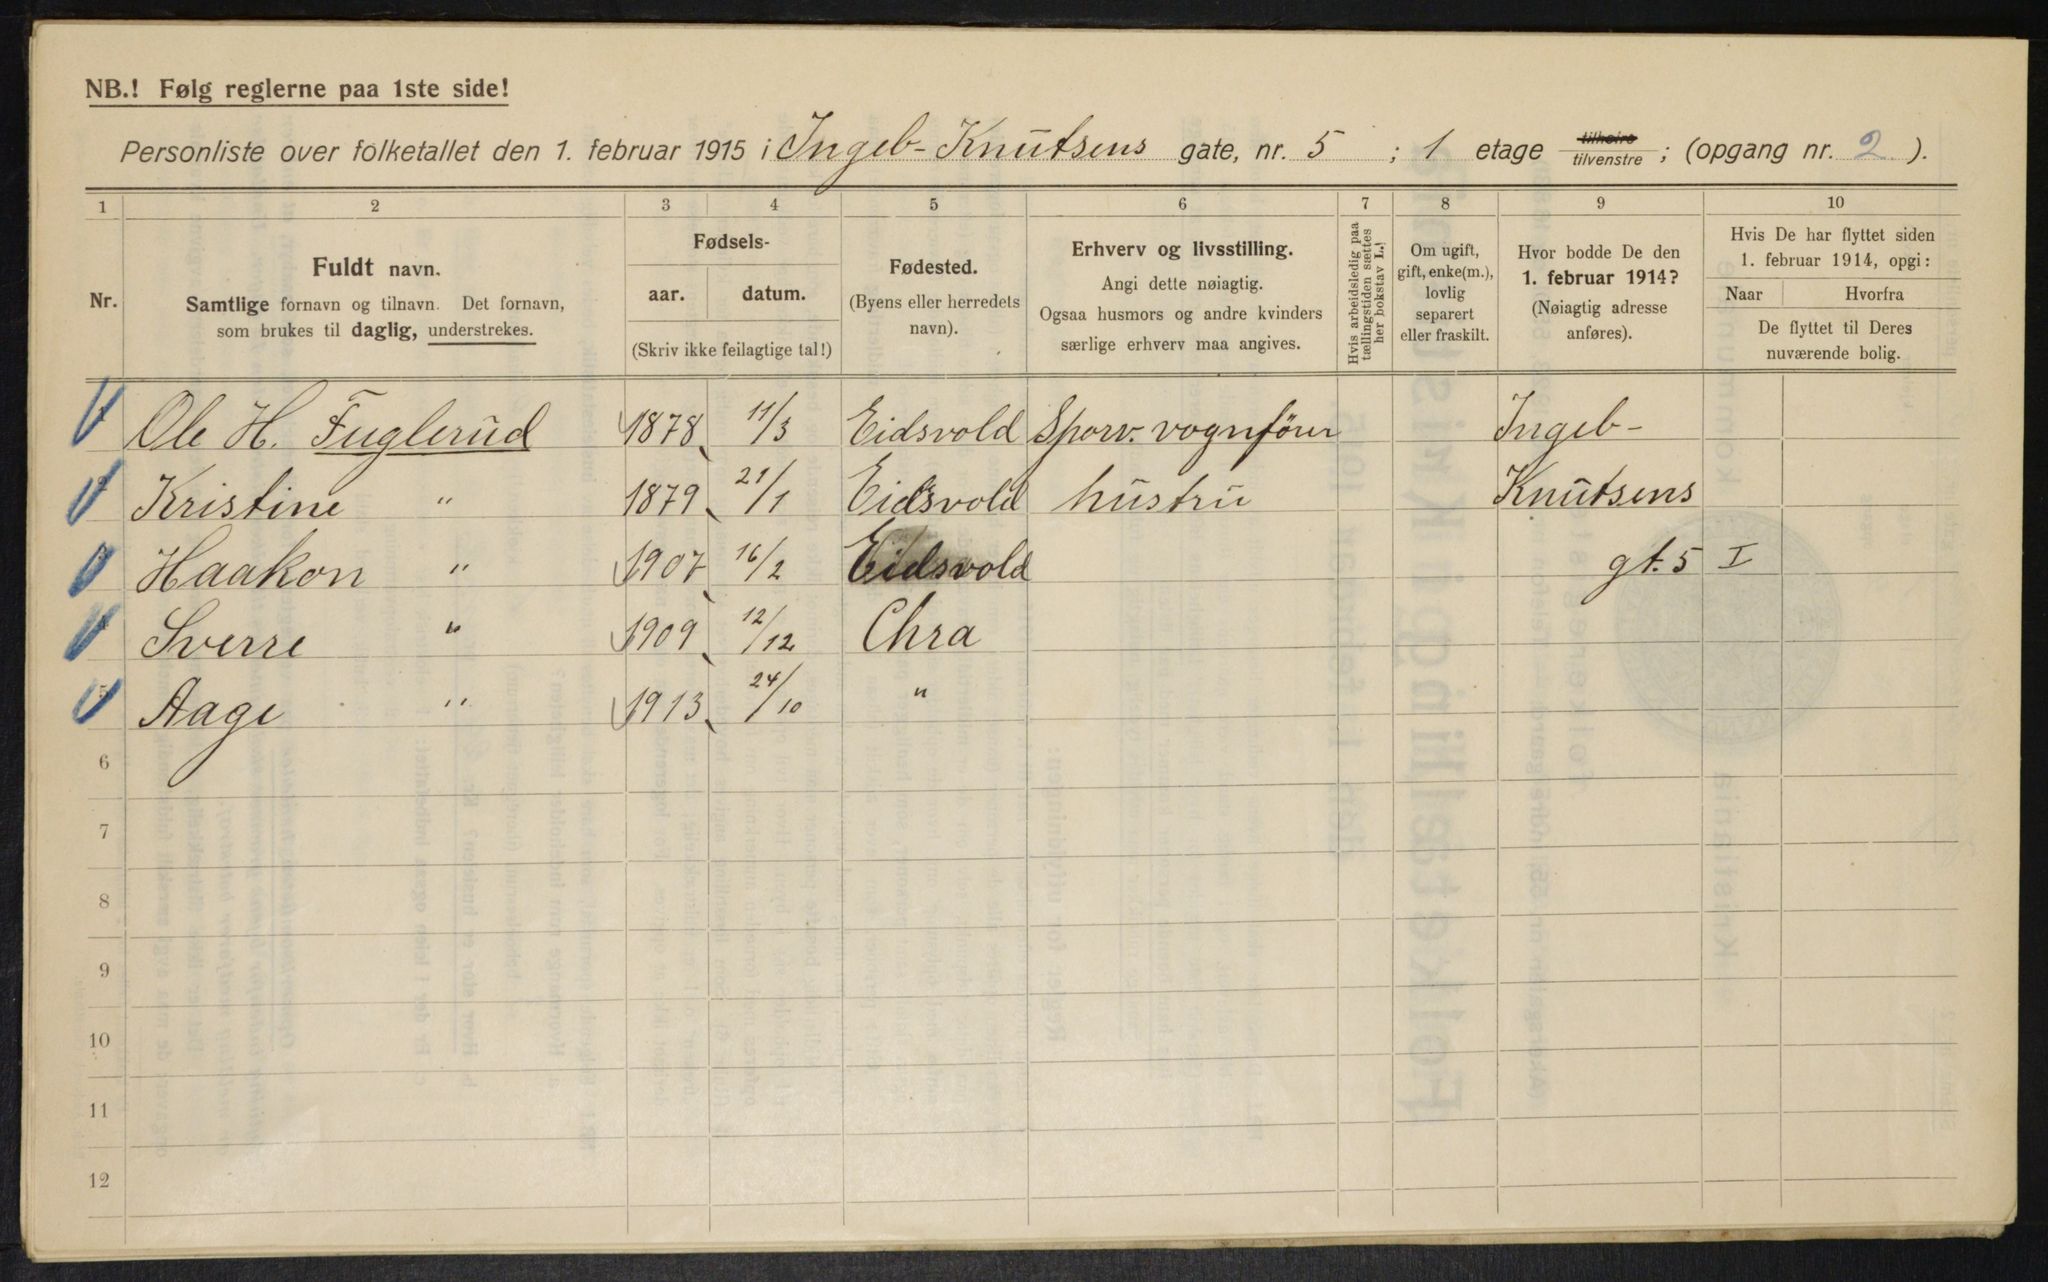 NB.! Følg reglerne paa 1ste side!
Personliste over folketallet den 1. februar 1915 i Ingeb- Knutsens gate, nr. 5 ; 1 etage tilhøire tilvenstre ; (opgang nr. 2 ).
1 2 3 4 5 6 7 8 9 10
Nr.
Fuldt navn.
Samtlige fornavn og tilnavn. Det fornavn,
som brukes til daglig, understrekes.
Fødsels-
aar. datum.
(Skriv ikke feilagtige tal!)
Fødested.
(Byens eller herredets
navn).
Erhverv og livsstilling.
Angi dette nøiagtig.
Ogsaa husmors og andre kvinders
særlige erhverv maa angives.
Hvis arbeidsledig paa
tællingstiden sættes
her bokstav L.!
Om ugift,
gift, enke(m.),
lovlig
separert
eller fraskilt.
Hvor bodde De den
1. februar 1914?
(Nøiagtig adresse
anføres).
Hvis De har flyttet siden
1. februar 1914, opgi:
Naar Hvorfra
De flyttet til Deres
nuværende bolig.
Ole H. Fuglerud 1878 11/3 Eidsvold Sporv. vognfører Ingeb-
Kristine " 1879 21/1 Eidsvold hustru Knutsens
Haakon " 1907 16/2 Eidsvold gt. 5 I
Sverre " 1909 12/12 Chra
5 Aage " 1913 24/10 "
6
7
8
9
10
11
12